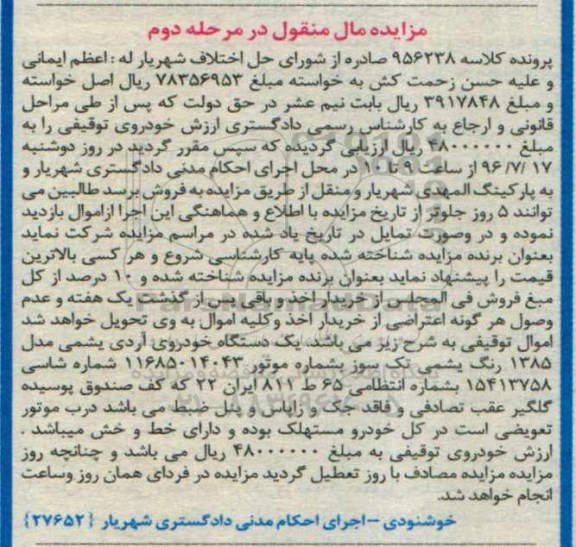 مزایده مال منقول در مرحله دوم
پرونده کلاسه ۹۵۶۲۳۸ صادره از شورای حل اختلاف شهریار له : اعظم ایمانی
و علیه حسن زحمت کش به خواسته مبلغ ۷۸۳۵۶۹۵۳ ریال اصل خواسته
و مبلغ ۳۹۱۷۸۴۸ ریال بابت نیم عشر در حق دولت که پس از طی مراحل
قانونی و ارجاع به کارشناس رسمی دادگستری ارزش خودروی توقیفی را به
مبلغ ۴۸۰۰۰۰۰۰ ریال ارزیابی گردیده که سپس مقرر گردید در روز دوشنبه
۹۶/۷/۱۷ از ساعت ۹ تا ۱۰ در محل اجرای احکام مدنی دادگستری شهریار و
به پارکینگ المهدی شهریار و منقل از طریق مزایده به فروش برسد طالبین می
توانند ۵ روز جلوتر از تاریخ مزایده با اطلاع و هماهنگی این اجرا ازاموال بازدید
نموده و در وصورت تمایل در تاریخ یاد شده در مراسم مزایده شرکت نماید
بعنوان برنده مزایده شناخته شده پایه کارشناسی شروع و هر کسی بالاترین
قیمت را پیشنهاد نماید بعنوان برنده مزایده شناخته شده و ۱۰ درصد از کل
مبغ فروش فی المجلس از خریدار اخذ و باقی پس از گذشت یک هفته و عدم
وصول هر گونه اعتراضی از خریدار اخذ وکلیه اموال به وی تحویل خواهد شد
اموال توقیفی به شرح زیر می باشد. یک دستگاه خودروی آردی یشمی مدل
۱۳۸۵ رنگ یشمی تک سوز بشماره موتور ۱۱۶۸۵۰۱۴۰۴۳ شماره شاسی
۱۵۴۱۳۷۵۸ بشماره انتظامی ۶۵ ط ۸۱۱ ایران ۲۲ که کف صندوق پوسیده
گلگیر عقب تصادفی و فاقد جک و زاپاس و پنل ضبط می باشد درب موتور
تعویضی است در کل خودرو مستهلک بوده و دارای خط و خش میباشد .
ارزش خودروی توقیفی به مبلغ ۴۸۰۰۰۰۰۰ ریال می باشد و چنانچه روز
مزایده مزایده مصادف با روز تعطیل گردید مزایده در فردای همان روز وساعت
انجام خواهد شد.
خوشنودی -اجرای احکام مدنی دادگستری شهریار {۲۷۶۵۲}